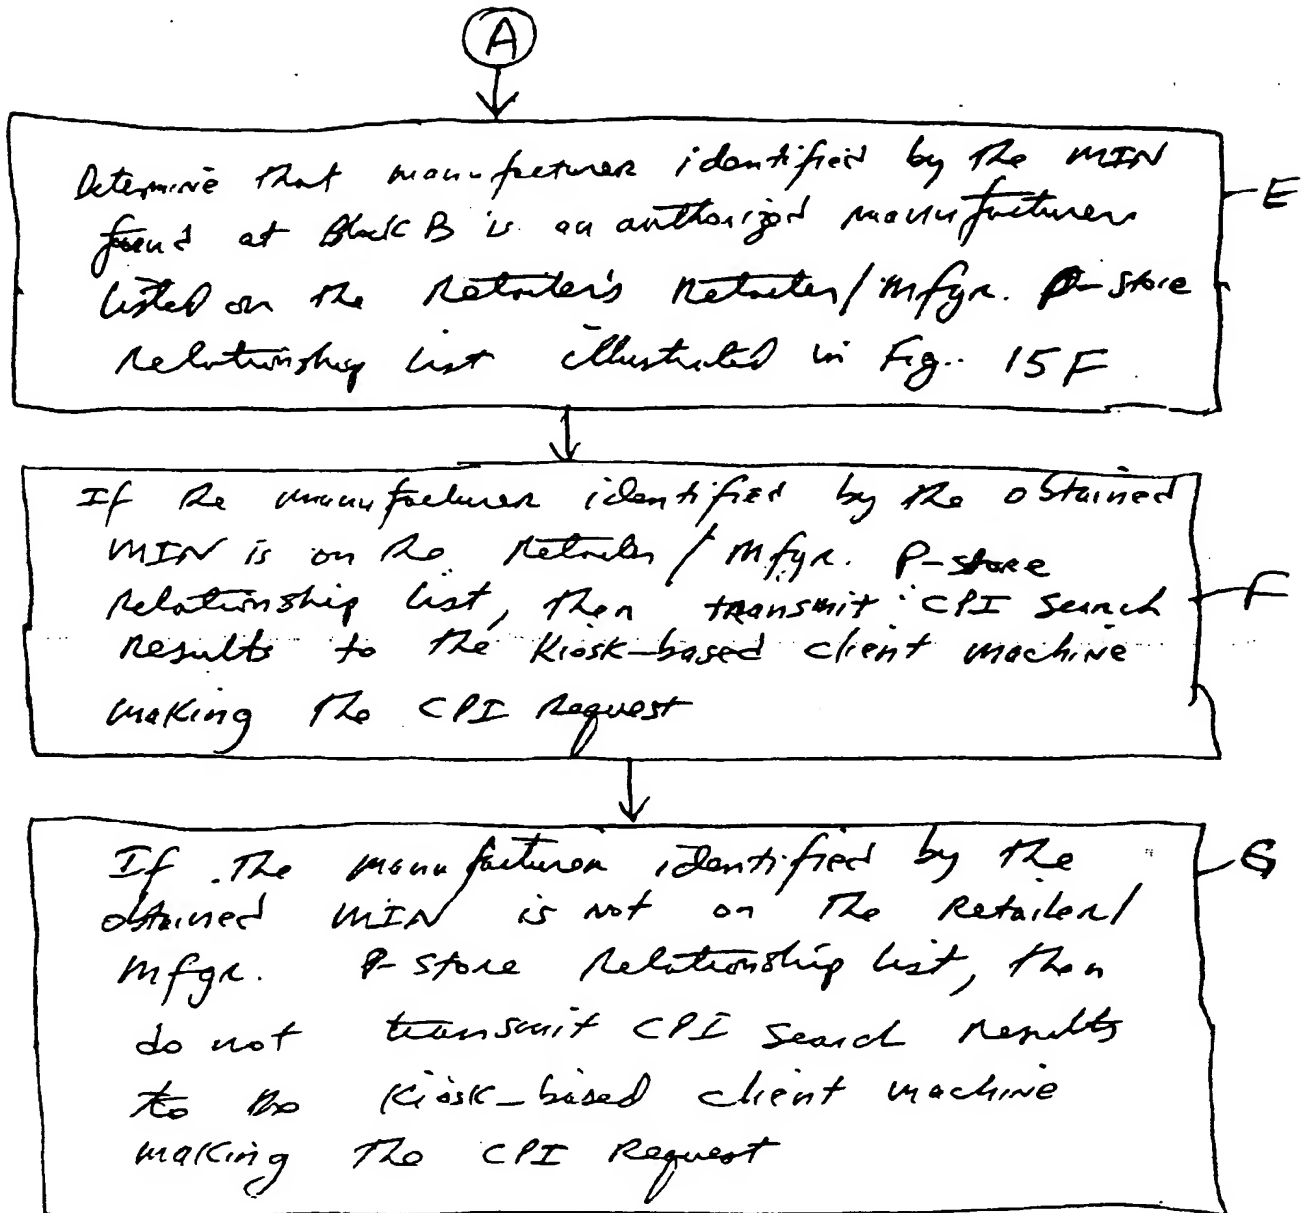 A
Determine that manufacturer identified by the MIN
found at Block B is an authorized manufacturer
E
listed on the Retailer's Retailer/Mfgr. P-store
Relationship list illustrated in Fig. 15F
If the manufacturer identified by the obtained
MIN is on the Retailer / Mfgr. P-store
Relationship list, then transmit CPI Search
F
Results to the Kiosk-based client machine
making the CPI Request
If the manufacturer identified by the
G
obtained MIN is not on the Retailer/
Mfgr. P-Store Relationship list, then
do not transmit CPI Search Results
to the Kiosk-based client machine
making the CPI Request